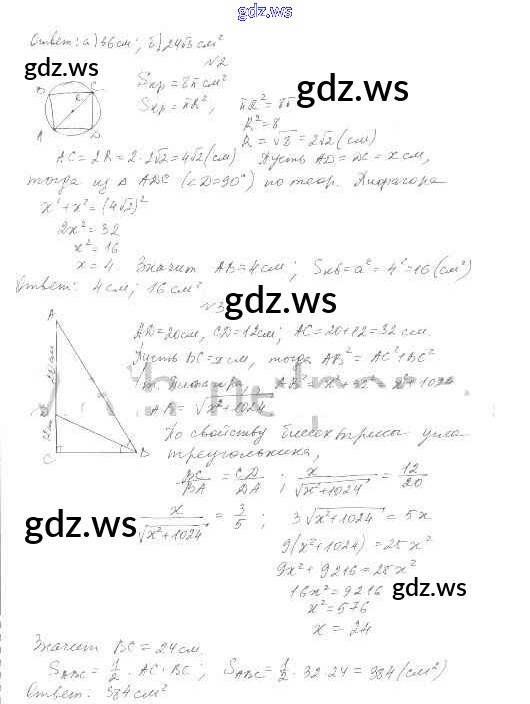 gdz.ws
Ответ: а) 36 см; б) 24√3 см²
gdz.ws
№2
Sкр = 8π см²
gdz.ws
Sкр = πR², πR² = 8π
R² = 8
R = √8 = 2√2 (см)
B C
A D
AC = 2R = 2·2√2 = 4√2 (см) Пусть AD = DC = x см,
тогда из △ ADC (∠D = 90°) по теор. Пифагора
x² + x² = (4√2)²
2x² = 32
x² = 16
x = 4. Значит AB = 4 см; Sкв = a² = 4² = 16 (см²)
Ответ: 4 см; 16 см²
№3
gdz.ws
A
AD = 20 см, CD = 12 см; AC = 20+12 = 32 см.
Пусть BC = x см, тогда AB² = AC² + BC²
AB² = x² + 32 x² + 1024
AB = √x² + 1024
C B
По свойству биссектрисы угла
треугольника,
BC/BA = CD/DA ; x/√x²+1024 = 12/20
gdz.ws
x/√x²+1024 = 3/5 ; 3√x²+1024 = 5x
9(x²+1024) = 25x²
9x² + 9216 = 25x²
16x² = 9216
gdz.ws
x² = 576
x = 24
Значит BC = 24 см.
SABC = 1/2 · AC · BC ; SABC = 1/2 · 32 · 24 = 384 (см²)
Ответ: 384 см²